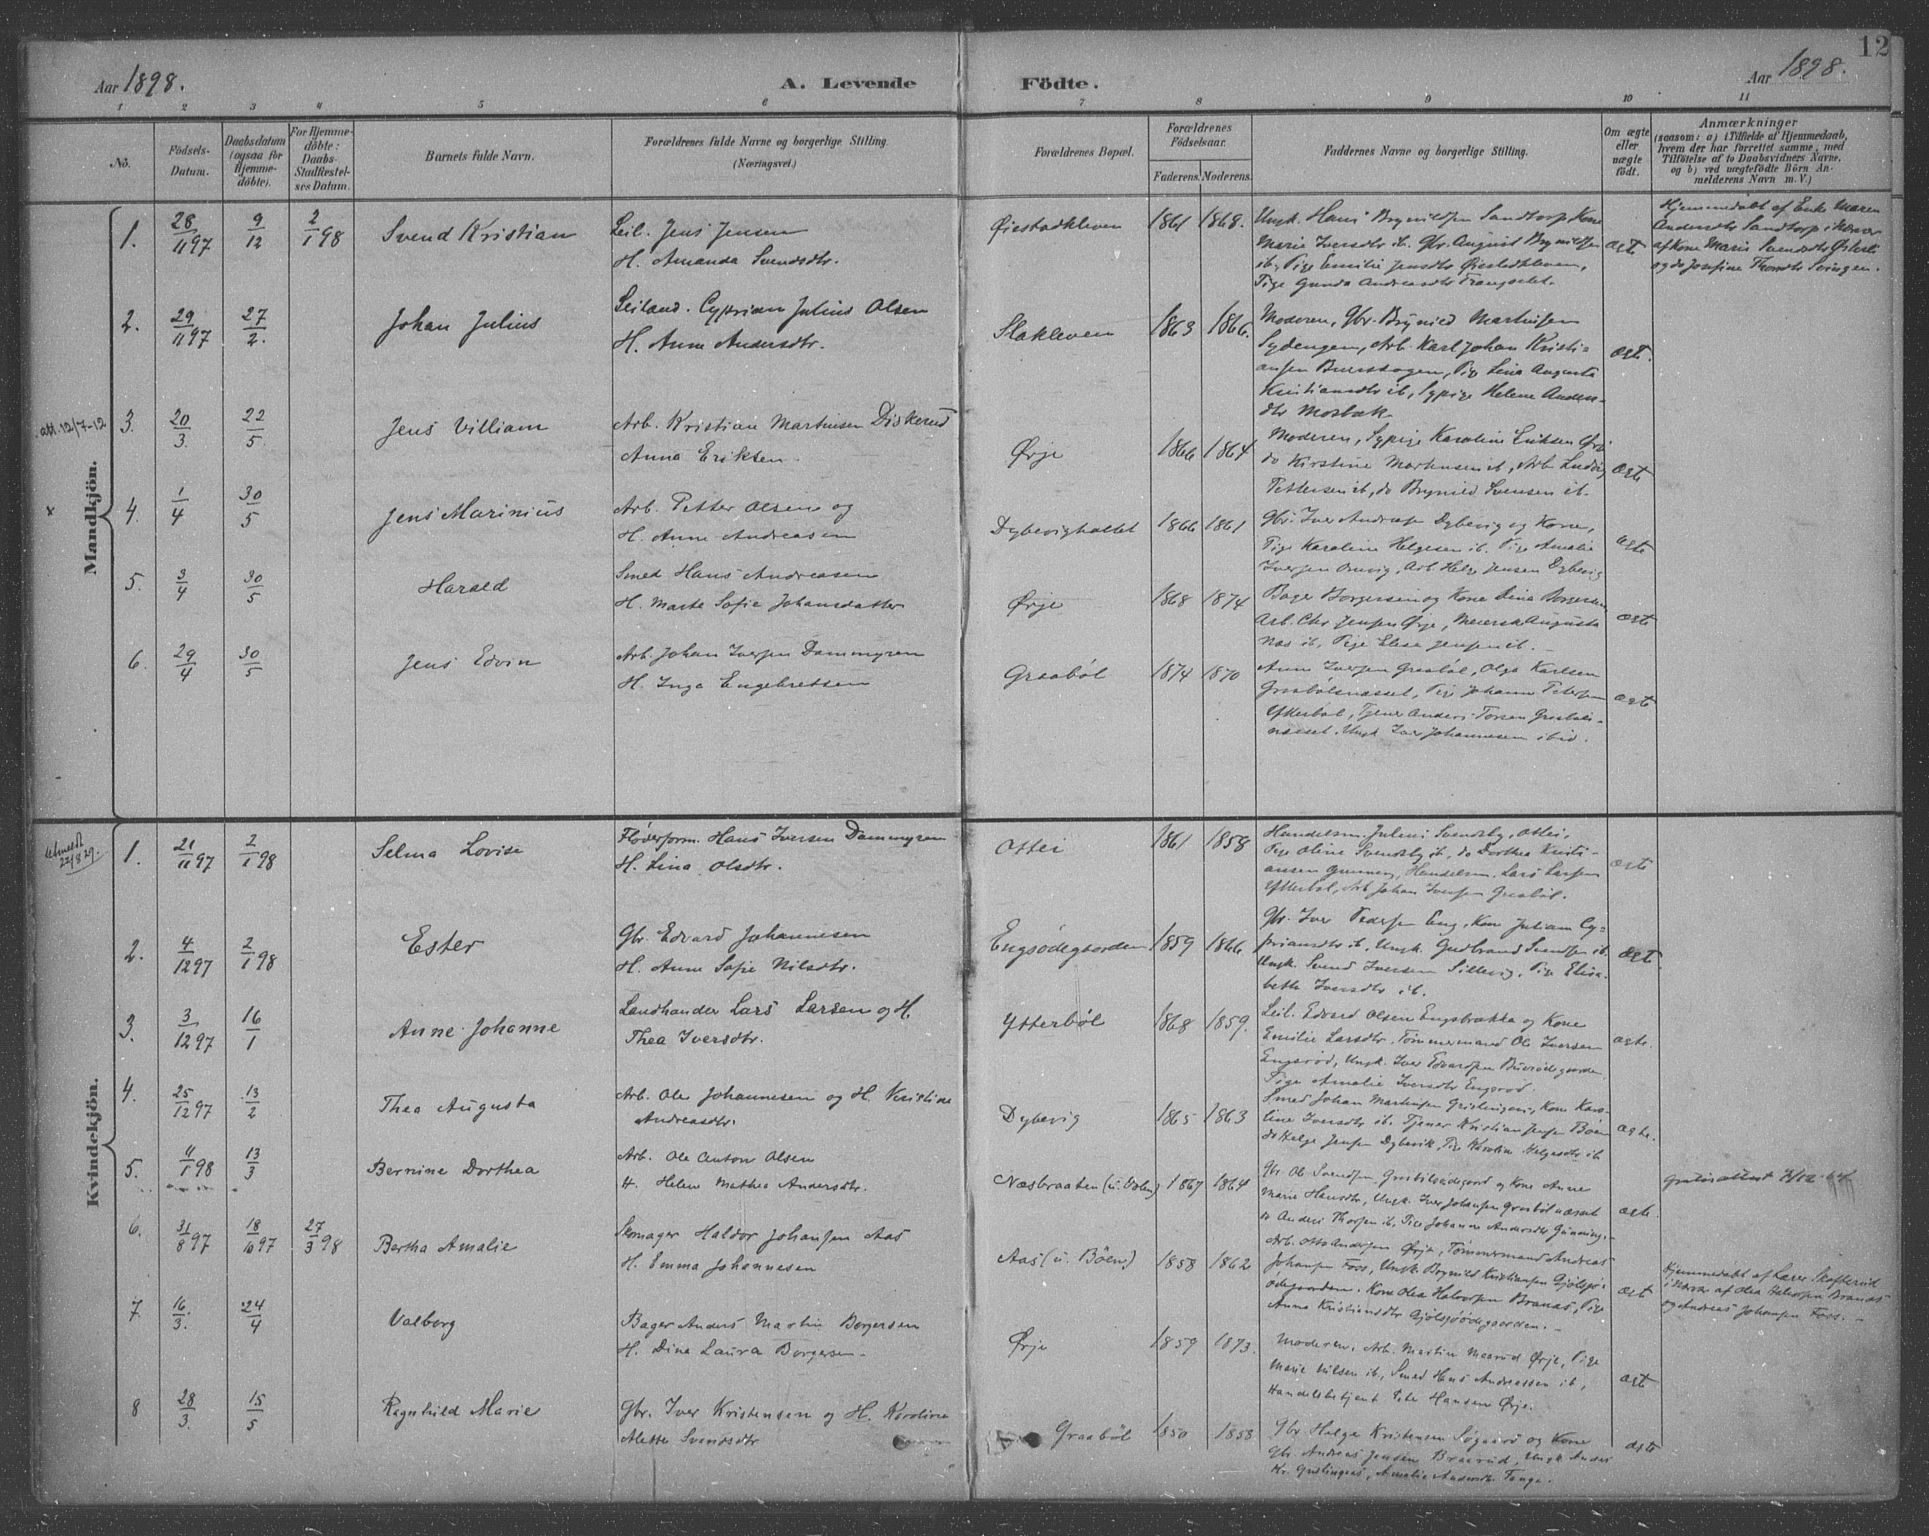 12
Aar 1898.
A. Levende Födte.
Aar 1898.
1 2 3 4 5 6 7 8 9 10 11
No.
Födsels-Datum.
Daabsdatum (ogsaa for Hjemme-döbte).
For Hjemme-döbte: Daabs-Stadfæstel-ses Datum.
Barnets fulde Navn.
Forældrenes fulde Navne og borgerlige Stilling. (Næringsvei.)
Forældrenes Bopæl.
Forældrenes Födselsaar.
Faderens. Moderens.
Faddernes Navne og borgerlige Stilling.
Om ægte eller uægte födt.
Anmærkninger
(saasom: a) i Tilfælde af Hjemmedaab,
hvem der har forrettet samme, med
Tilföielse af to Daabsvidners Navne,
og b) ved uægtefödte Börn An-
melderens Navn m. V.)
Mandkjön.
1. 28/11 97 9/12 2/1 98 Svend Kristian
Leil. Jens Jensen
H. Amanda Svendsdtr.
Øiestadkleven 1861 1868.
Ungk. Hans Brynildsen Sandtorp, Kone
Marie Iversdtr ib. Gbr. August Brynildsen
ib, Pige Emilie Jensdtr Øiestadkleven,
Pige Gunda Andreasdtr
ægt
Hjemmedøbt af Enke Maren
Andersdtr Sandtorp i Nærvær
af Kone Marie Svendsdtr
og do Josefine Thordtr Svingen.
2. 29/11 97 27/2. Johan Julius
Leiland. Cyprian Julius Olsen
H. Anne Andersdtr.
Slakleven 1863 1866.
Moderen, Gbr. Brynild Martinsen
Sydengen, Arb. Karl Johan Kristi-
ansen, Pige Lina Augusta
Kristiansdtr ib, Sypige Helene Anders-
dtr Mosbæk.
ægt.
att. 12/7-12
3. 20/3 22/5 Jens Villiam
Arb. Kristian Martinsen Diskerud
Anna Eriksen.
Ørje 1866 1864
Moderen, Sypige Karoline Eriksen Ørje
do Kirstine Martinsen ib, Arb. Ludvig
Pettersen ib, do Brynild Svensen ib.
ægte
x
4. 1/4 30/5 Jens Marinius
Arb. Petter Olsen og
H. Anne Andreasen
Dybevigholtet 1866 1861
Gbr. Iver Andreasen Dybevig og Kone,
Pige Karoline Helgesen ib. Pige Amalie
Iversen, Arb. Helge Jensen Dybevig
ægte
5. 3/4 30/5 Harald
Smed Hans Andreasen
H. Marte Sofie Johansdatter
Ørje 1868 1874
Bager Borgersen og Kone Dina Borgersen,
Arb. Chr. Jensen Ørje, Meiersk Augusta
Næs ib, Pige Elise Jensen ib.
ægte
6. 29/4 30/5 Jens Edvin
Arb. Johan Iversen Dammyren
H. Inga Engebretsen
Graabøl 1874 1870
Anne Iversen Graabøl, Olga Karlsen
Graabølsnæsset, Pige Johanne Petersen
Ytterbøl, Tjener Anders Torsen Graabøls-
næsset. Ungk Iver Johannesen ibid.
ægte
Kvindekjön.
Utmeldt 22/8 29.
1. 21/11 97 2/1 98 Selma Lovise
Fløderform. Hans Iversen Dammyren
H. Lina Olsdtr.
Ottei 1861 1858
Handelsm. Julius Svendsby, Ottei,
Pige Oline Svendsby ib, do Dorthea Kristi-
ansen, Handelsm. Lars Larsen
Ytterbøl, Arb. Johan Iversen Graabøl.
ægte
2. 4/12 97 2/1 98 Ester
Gbr. Edvard Johannesen
H. Anne Sofie Nilsdtr.
Engsødegaarden 1859 1866.
Gbr. Iver Pedersen Eng, Kone Juliane Cy-
priansdtr ib, Ungk. Gudbrand Svendsen ib.
Ungk. Svend Iversen Sillevig, Pige Elisa-
beth Iversdtr ib.
ægt.
3. 3/12 97 16/1 Anne Johanne
Landhandler Lars Larsen og H.
Thea Iversdtr.
Ytterbøl 1868 1859.
Leil. Edvard Olsen Engsbrækka og Kone
Emilie Larsdtr. Tømmermand Ole Iversen
Engsrød, Ungk. Iver Edvardsen
Pige Amalie Iversdtr Engsrød.
ægte.
4. 25/12 97 13/2 Thea Augusta
Arb. Ole Johannesen og H. Kristine
Andreasdtr.
Dybevig 1865 1863
Smed Johan Martinsen, Kone Karo-
line Iversdtr ib. Tjener Kristian Jensen Bøen
do Helge Jensen Dybevik, Pige Karoline Helgesdtr ib
ægte.
5. 11/1 98 13/3 Bernine Dorthea
Arb. Ole Anton Olsen
H. Helene Mathea Andersdtr.
Næsbraaten (u. Bøen) 1867 1864
Gbr. Ole Svendsen og Kone Anne
Marie Hansdtr, Ungk. Iver Johansen Graabølnæsset
do Anders Thorsen ib, Pige Johanne Andersdtr
ægte.
6. 31/8 97 18/10 97 27/3 98 Bertha Amalie
Skomager Haldor Johansen Aas
H. Emma Johannesen
Aas (u. Böen) 1858 1862
Arb. Otto Andersen Ørje, Tømmermand Andreas
Johansen Foss, Ungk Brynild Kristiansen Gjølsjø-
ødegaarden. Kone Olea Halvorsen Brandås, Pige
Anna Kristiansdtr Gjølsjøødegaarden.
ægt
Hjemmedøbt af Lærer Skofterud
i Nærvær af Olea Halvorsen Brandås
og Andreas Johansen Foss.
7. 16/3. 24/4 Valborg
Bager Anders Martin Borgersen
H. Dina Laura Borgersen
Ørje 1859 1873.
Moderen, Arb. Martin Ørje, Pige
Marie Nilsen ib, Smed Hans Andreassen ib,
Handelsbetjent Peter Hansen Ørje.
ægt
8 28/3. 15/5 Ragnhild Marie
Gbr. Iver Kristensen og H. Karoline
Alette Svendsdtr
Graabøl 1850 1858
Gbr Helge Kristensen Søgaard og Kone
Gbr. Andreas Jensen, Ungk Anders
Kr., Amalie Andersdtr Tange.
ægte